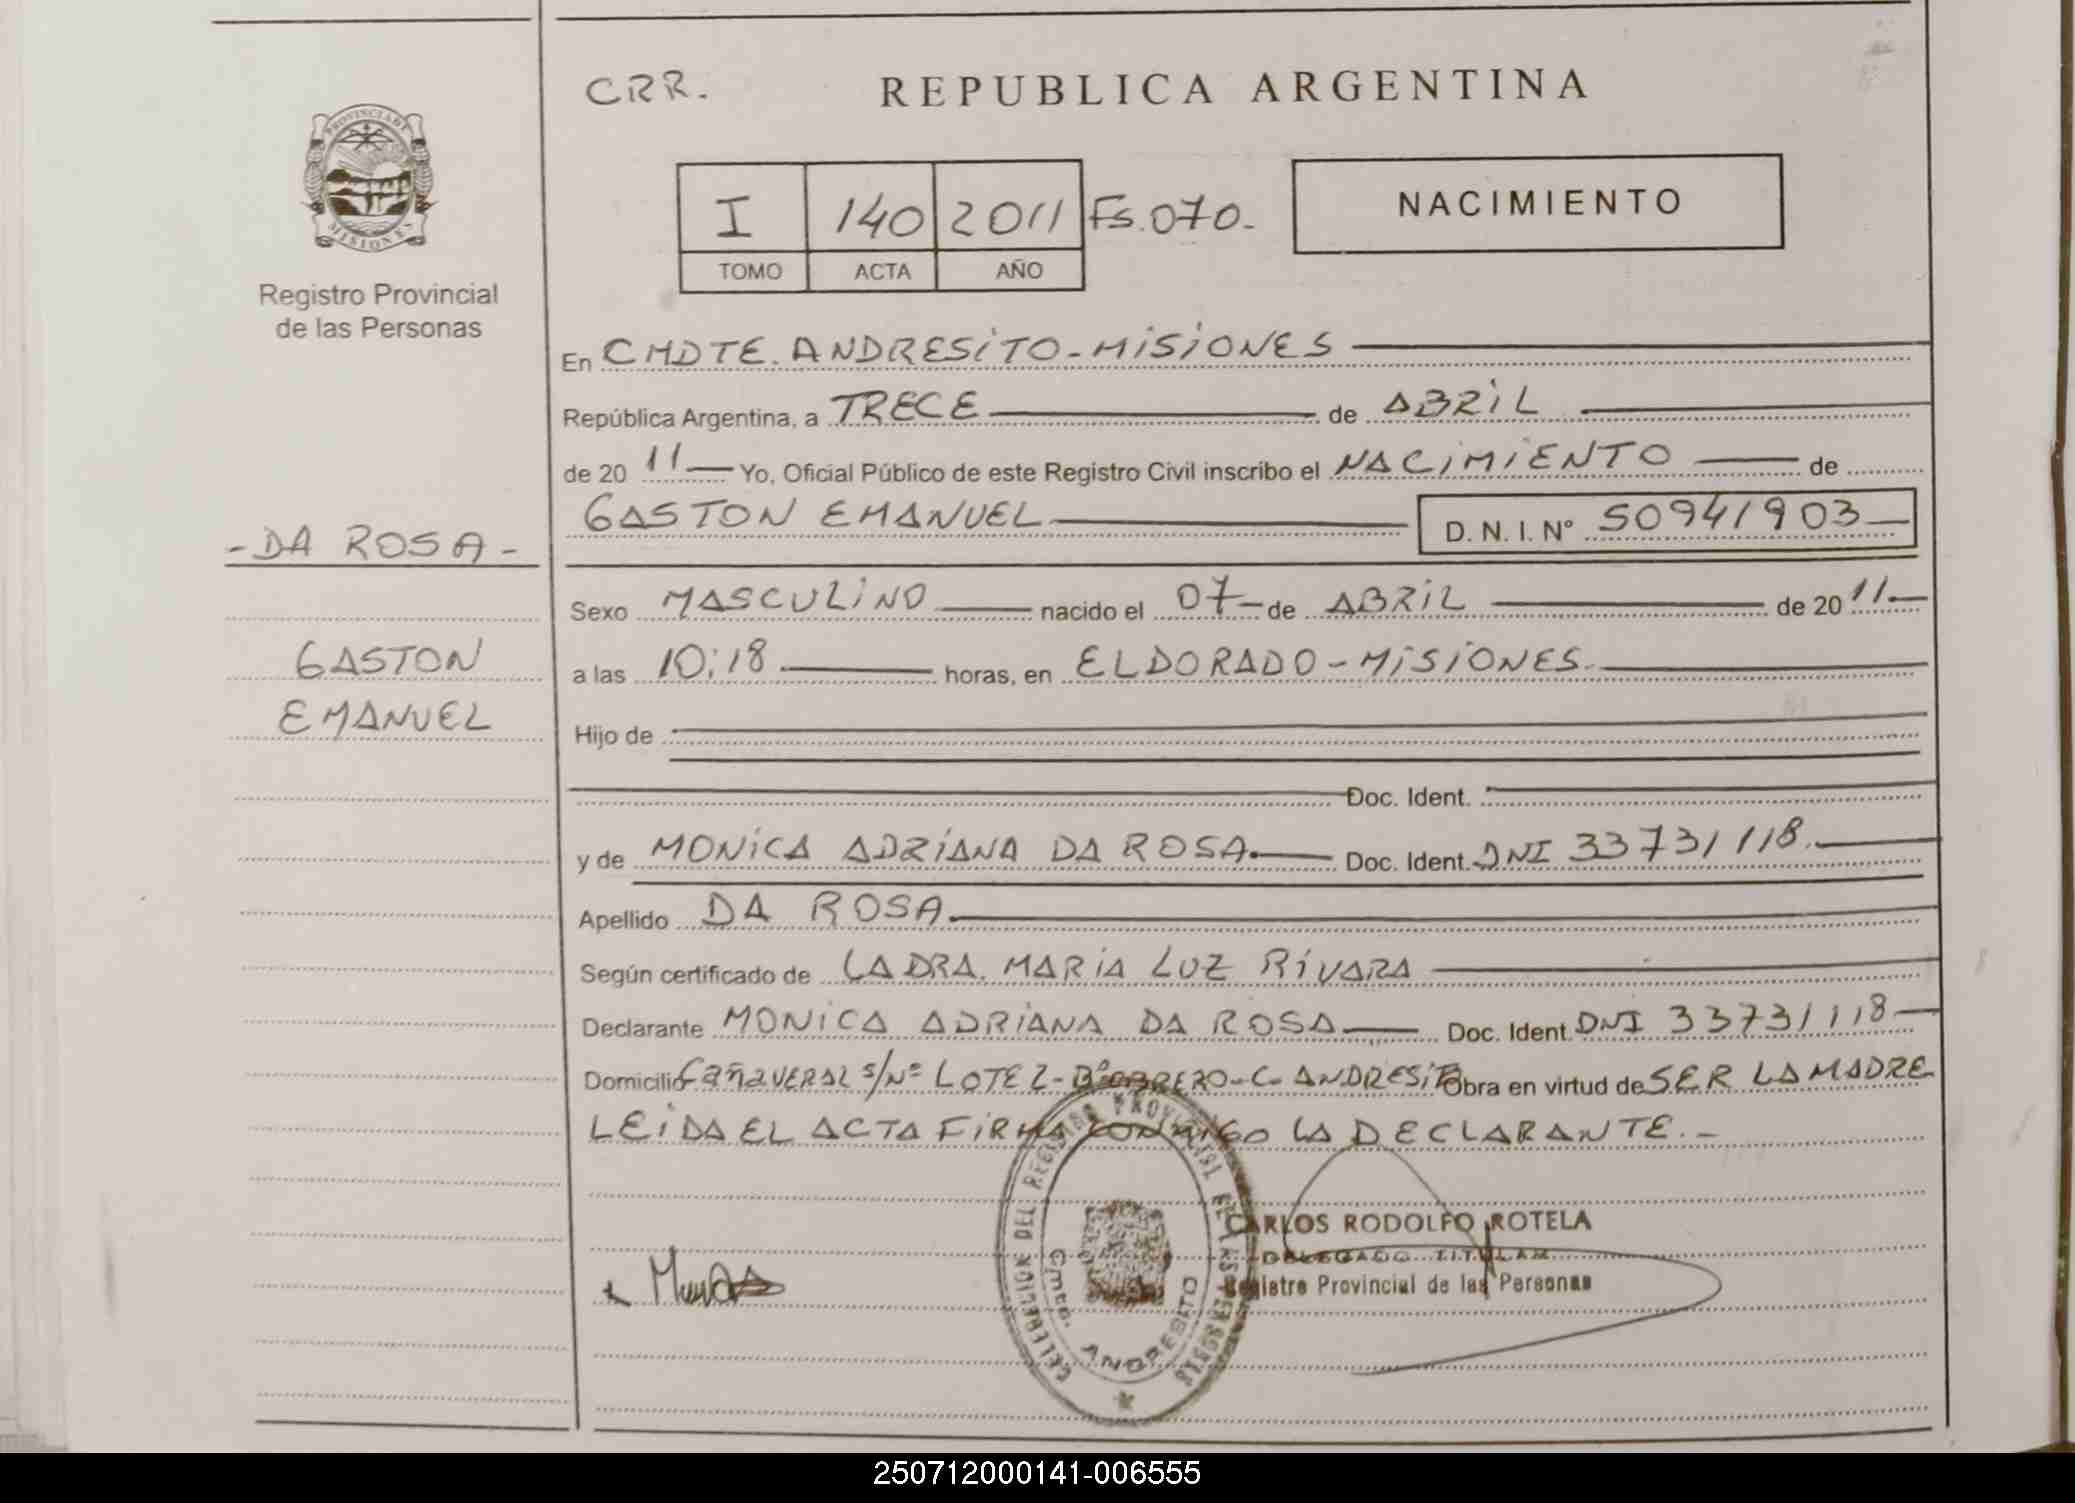 CRR.
REPUBLICA ARGENTINA
PROVINCIA DE
MISIONES
I 140 2011 Fs. 070.-
TOMO ACTA AÑO
NACIMIENTO
Registro Provincial
de las Personas
En CMDTE. ANDRESiTO - MiSiONES
República Argentina, a TRECE de ABRiL
de 20 11 Yo, Oficial Público de este Registro Civil inscribo el NACiMiENTO de
GASTON EMANUEL D. N. I. Nº 50941903
- DA ROSA -
Sexo MASCULiNO nacido el 07 de ABRiL de 20 11
GASTON
a las 10:18 horas, en ELDORADO - MiSiONES.
EMANUEL
Hijo de
Doc. Ident.
y de MONiCA ADRiANA DA ROSA Doc. Ident. DNI 33731118.
Apellido DA ROSA
Según certificado de LA DRA. MARiA LUZ RiVARA
Declarante MONiCA ADRiANA DA ROSA Doc. Ident. DNI 33731118
Domicilio CAñAVERAL S/Nº LOTE 2 - Bº OBRERO - C. ANDRESiTO Obra en virtud de SER LA MADRE
LEiDA EL ACTA FiRMA CONMIGO LA DECLARANTE. -
CARLOS RODOLFO ROTELA
DELEGADO TITULAR
Registro Provincial de las Personas
DEL REGISTRO PROVINCIAL DE LAS PERSONAS
Cmte. ANDRESITO
250712000141-006555